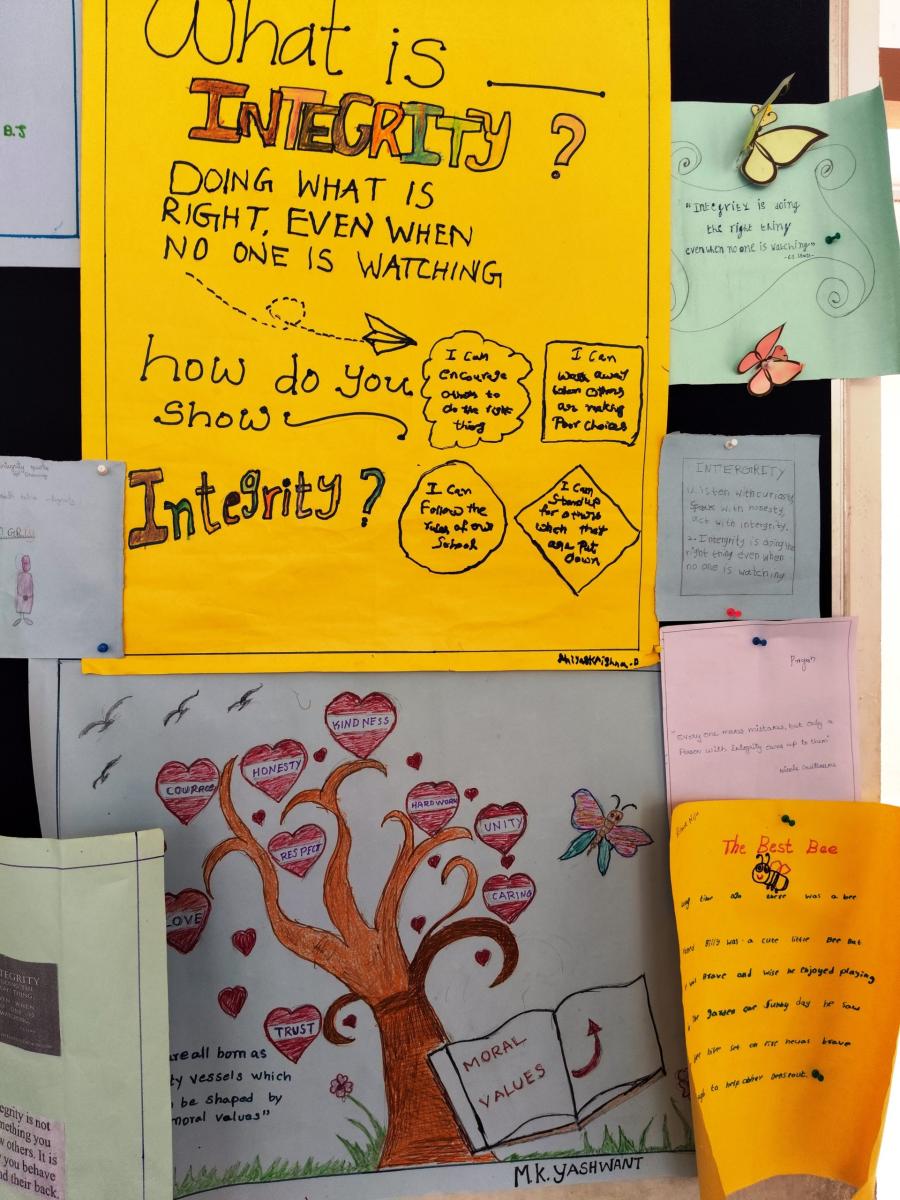 B.J
What is
INTEGRITY ?
DOING WHAT IS
RIGHT, EVEN WHEN
NO ONE IS WATCHING
how do you
show
Integrity ?
I can
encourage
others to
do the right
thing
I can
walk away
when others
are making
Poor choices
I can
Follow the
rules of our
School
I can
Stand up
for others
when that
are Put
down
"Integrity is doing
the right thing
even when no one is watching"
INTERGRITY
1. listen with curiosity
Speak with honesty,
act with intergrity.
2. Intengrity is doing the
right thing even when
no one is watching
integrity quote
"Every one makes mistakes, but only a
Person with integrity owns up to them"
KINDNESS
HONESTY
COURAGE
HARDWORK
UNITY
RESPECT
CARING
LOVE
TRUST
are all born as
ty vessels which
be shaped by
moral values"
MORAL
VALUES
M.K. YASHWANT
The Best Bee
was a bee
Billy was a cute little Bee But
Brave and wise he enjoyed playing
the garden one Sunny day he saw
set on fire
brave
to help other
TEGRITY
DOING THE
NO ONE IS
egrity is not
mething you
w others. It is
you behave
nd their back.